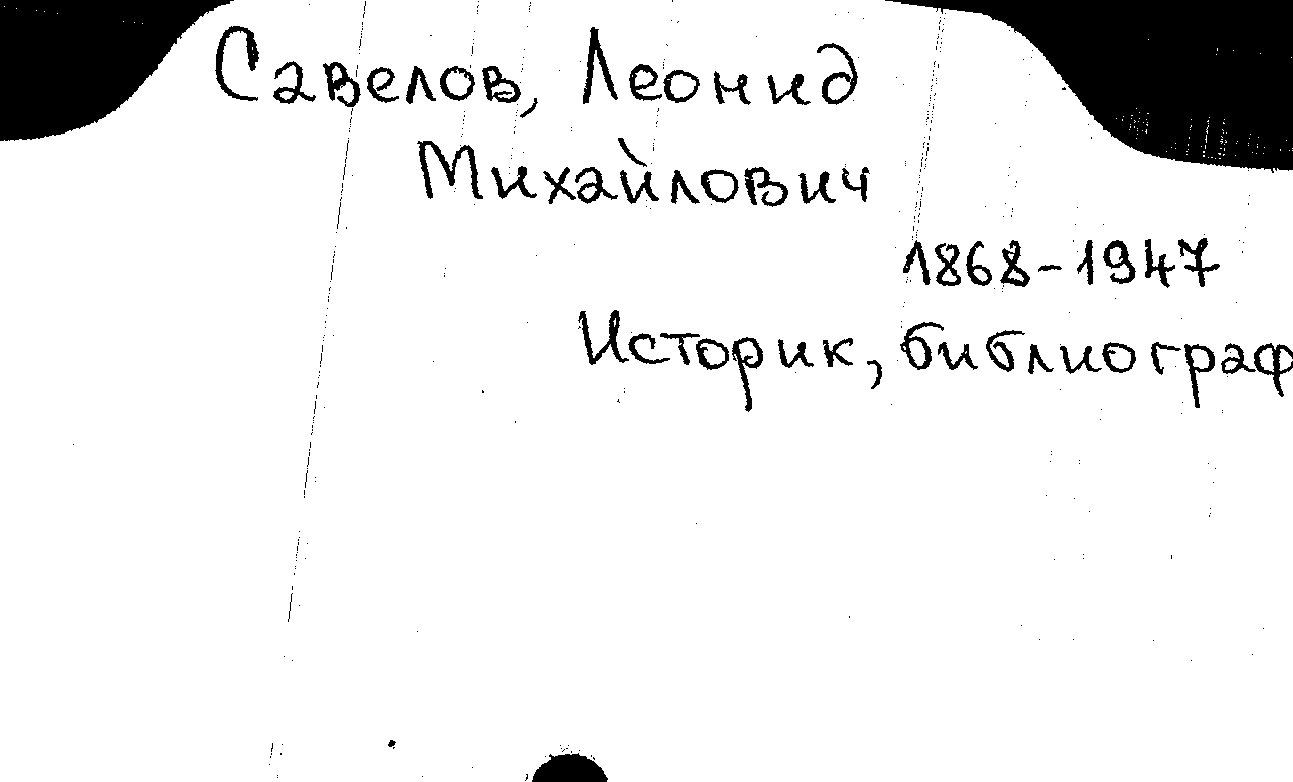 Савелов, Леонид
Михайлович
1868-1947
Историк, библиограф